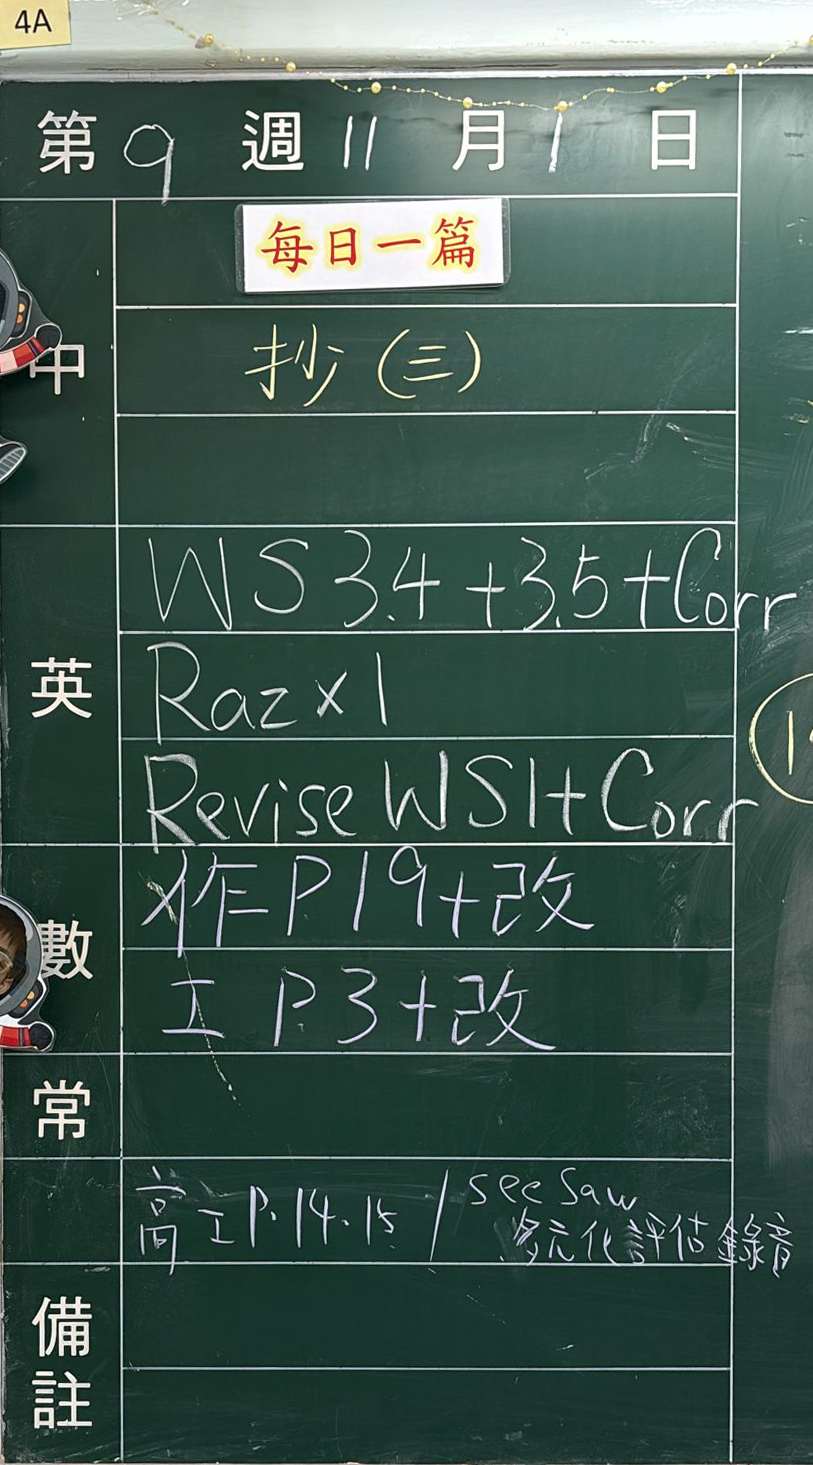 4A
第9週11月1日
每日一篇
中
抄(三)
英
WS 3.4 +3.5+Corr
Raz x 1
Revise WS1+Corr
數
作 P.19+改
工 P.3+改
常
高工P.14.15 / seesaw
多元化評估錄音
備註